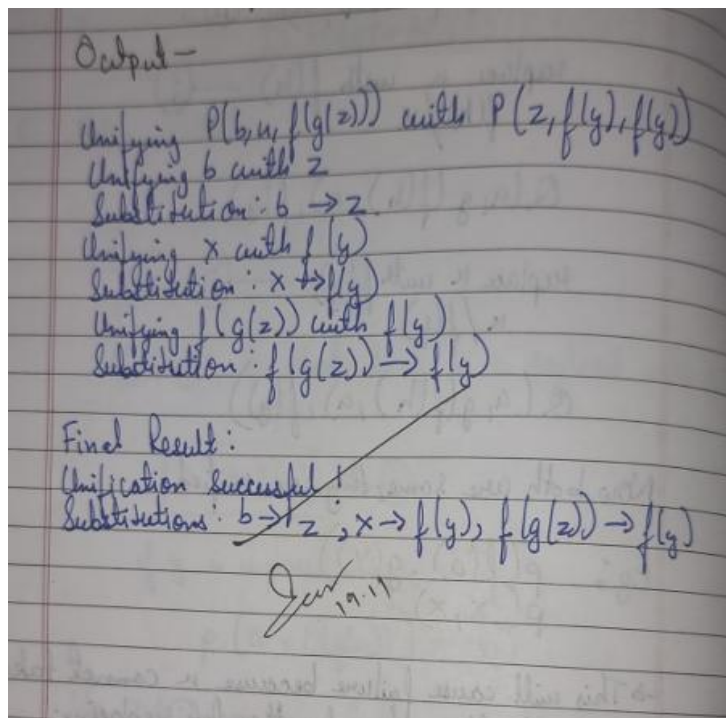 Output –
Unifying P(b, x, f(g(z))) with P(z, f(y), f(y))
Unifying b with z
Substitution: b → z
Unifying x with f(y)
Substitution: x → f(y)
Unifying f(g(z)) with f(y)
Substitution: f(g(z)) → f(y)
Final Result:
Unification Successful!
Substitutions: b → z, x → f(y), f(g(z)) → f(y)
19.11